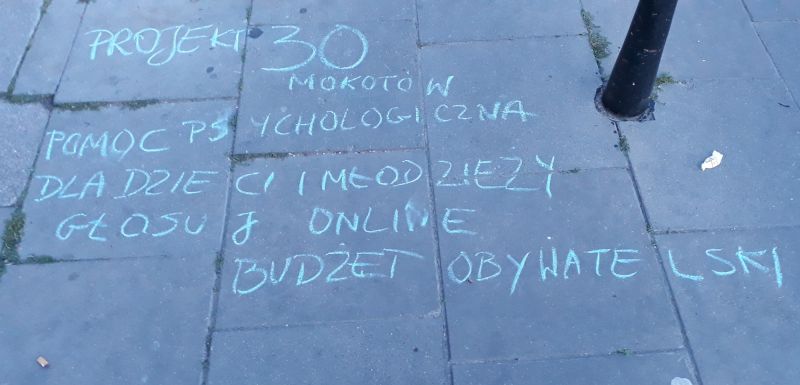 PROJEKT 30
MOKOTÓW
POMOC PSYCHOLOGICZNA
DLA DZIECI I MŁODZIEŻY
GŁOSUJ ONLINE
BUDŻET OBYWATELSKI